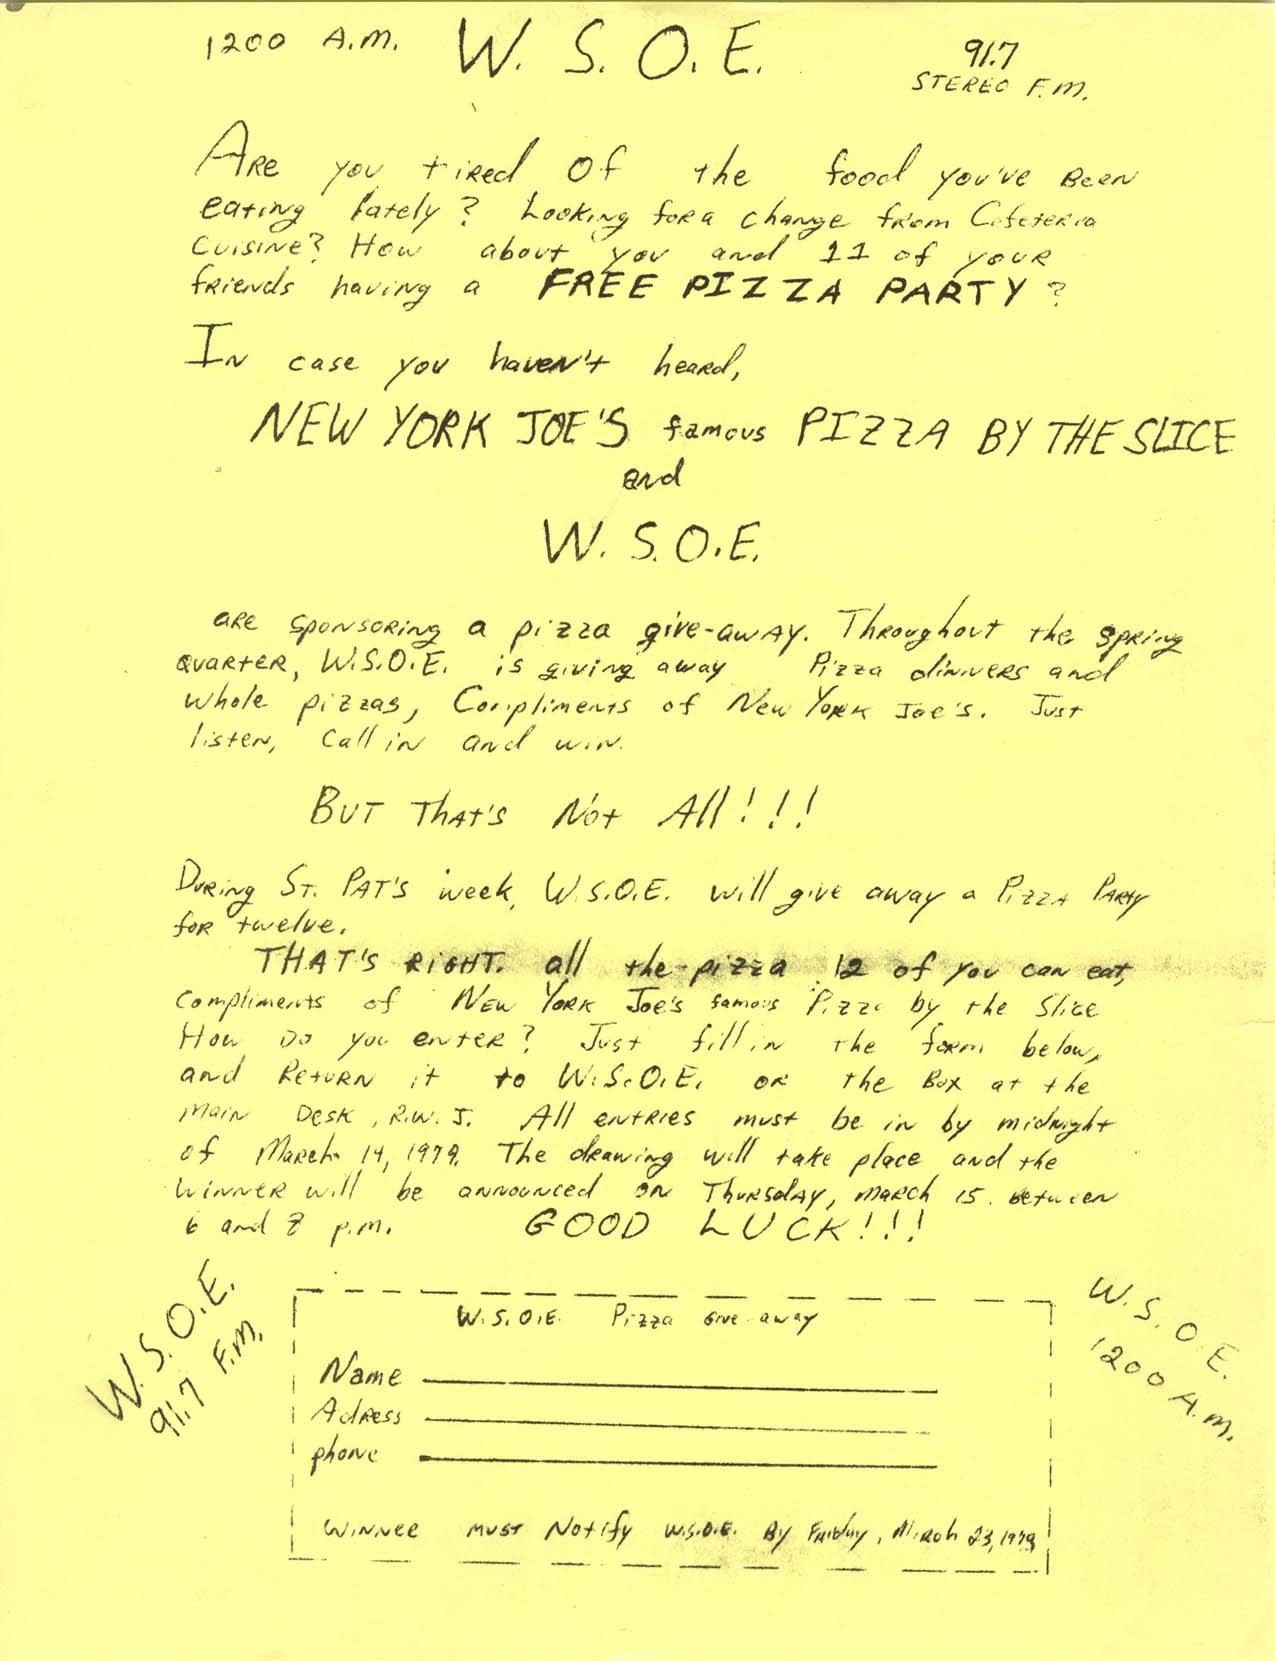 1200 A.M. W. S. O. E. 91.7
STEREO F.M.
ARE you tired Of the food you've BEEN
eating lately? Looking for a change from Cafeteria
cuisine? How about you and 11 of your
friends having a FREE PIZZA PARTY?
IN case you haven't heard,
NEW YORK JOE'S famous PIZZA BY THE SLICE
and
W. S. O. E.
are sponsoring a pizza give-away. Throughout the spring
quarter, W.S.O.E. is giving away Pizza dinners and
whole pizzas, Compliments of New York Joe's. Just
listen, Call in and win.
BUT THAT'S Not All!!!
During St. Pat's week, W.S.O.E. will give away a Pizza Party
for twelve.
THAT'S RIGHT. all the pizza 12 of you can eat,
compliments of New York Joe's famous Pizza by the Slice
How Do you enter? Just fill in the form below,
and Return it to W.S.O.E. or the Box at the
Main Desk, R.W.J. All entries must be in by midnight
of March 14, 1979. The drawing will take place and the
winner will be announced on Thursday, March 15. between
6 and 8 p.m. GOOD LUCK!!!
W.S.O.E.
91.7 F.M.
W.S.O.E.
1200 A.M.
W.S.O.E. Pizza Give-away
Name
Adress
phone
Winner must Notify W.S.O.E. By Friday, March 23, 1979